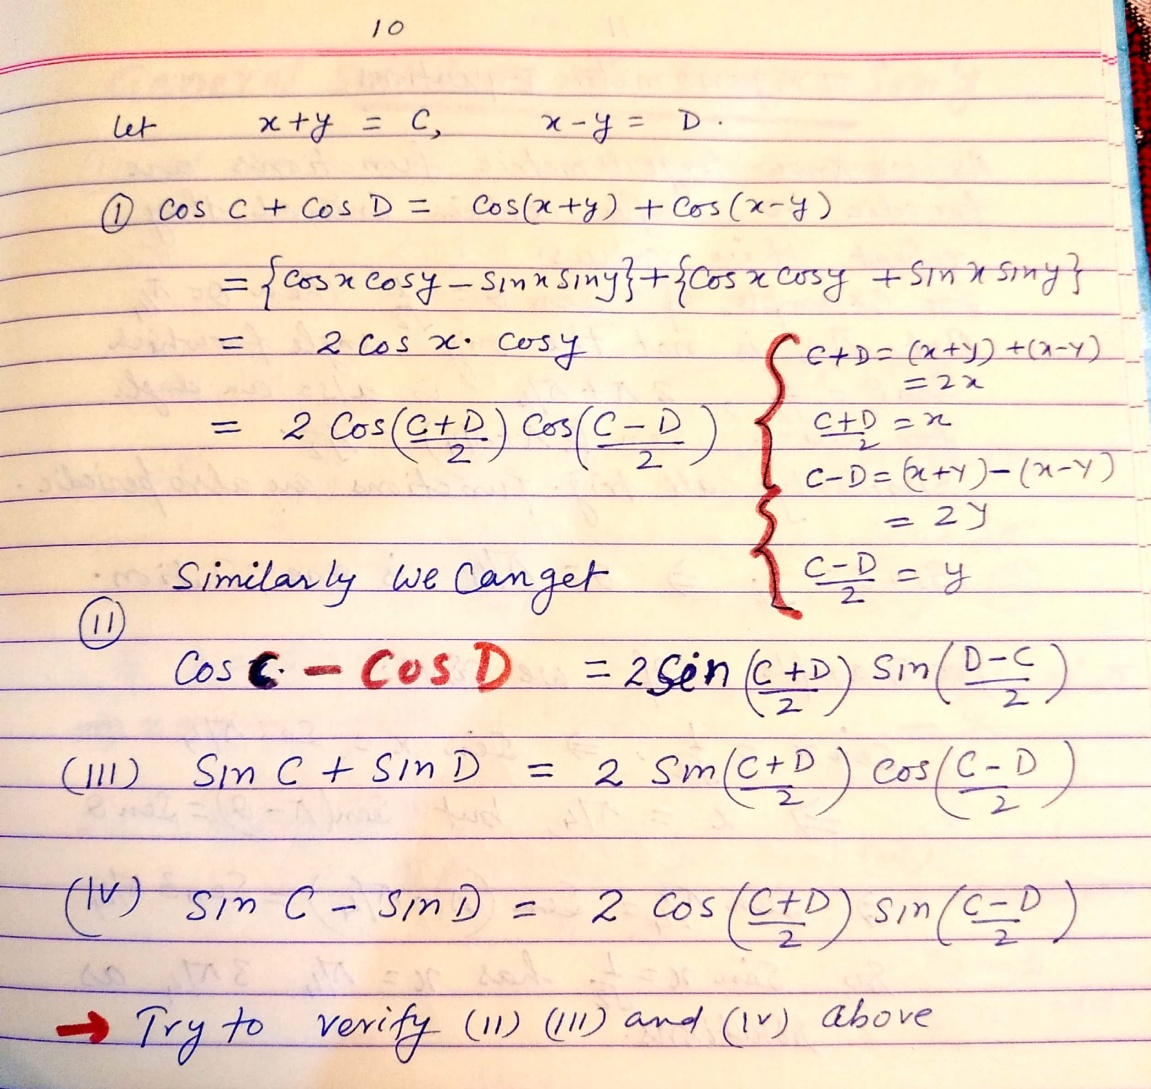 10
Let x+y = C, x-y = D.
① Cos C + Cos D = Cos(x+y) + Cos(x-y)
= {Cosx Cosy - Sinx Siny} + {Cosx Cosy + Sinx Siny}
= 2 Cos x. Cosy
= 2 Cos((C+D)/2) Cos((C-D)/2)
C+D = (x+y) + (x-y)
= 2x
(C+D)/2 = x
C-D = (x+y) - (x-y)
= 2y
(C-D)/2 = y
Similarly We Can get
(II)
Cos C - Cos D = 2 Sin((C+D)/2) Sin((D-C)/2)
(III) Sin C + Sin D = 2 Sin((C+D)/2) Cos((C-D)/2)
(IV) Sin C - Sin D = 2 Cos((C+D)/2) Sin((C-D)/2)
→ Try to verify (II) (III) and (IV) above